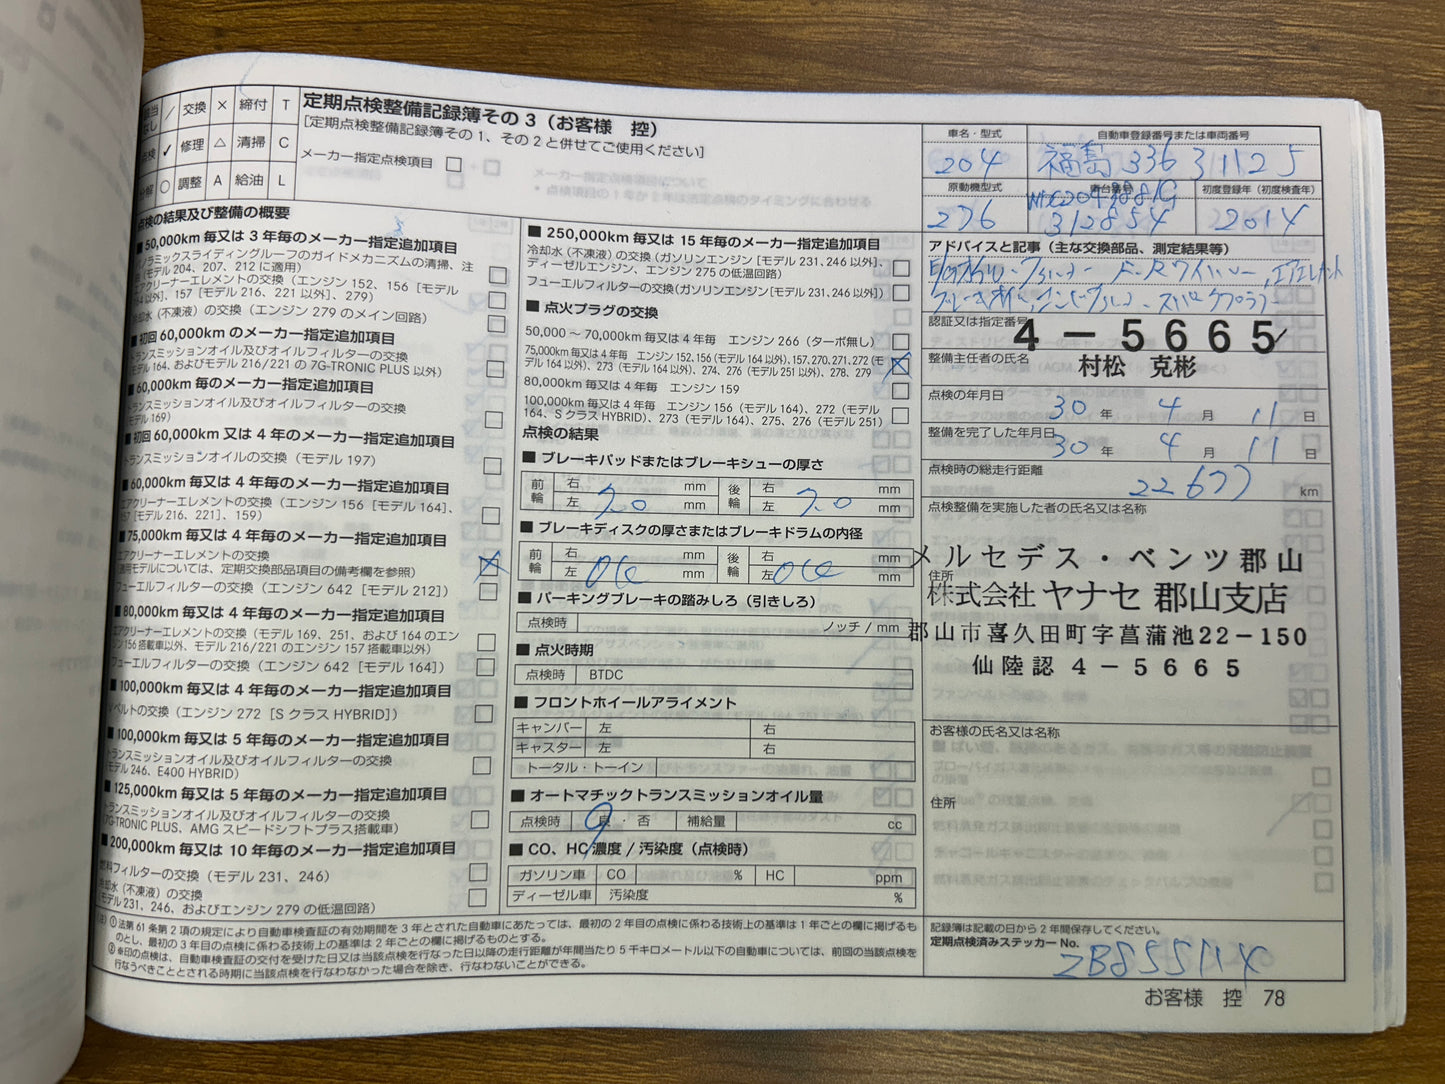 なし ／ 交換 × 締付 T
点検 ✓ 修理 △ 清掃 C
分解 ○ 調整 A 給油 L
定期点検整備記録簿その3（お客様　控）
［定期点検整備記録簿その1、その2と併せてご使用ください］
メーカー指定点検項目
点検の結果及び整備の概要
■50,000km毎又は3年毎のメーカー指定追加項目
パノラミックスライディングルーフのガイドメカニズムの清掃、注
（モデル204、207、212に適用）
エアクリーナーエレメントの交換（エンジン152、156［モデル
164以外］、157［モデル216、221以外］、279）
冷却水（不凍液）の交換（エンジン279のメイン回路）
■初回60,000kmのメーカー指定追加項目
トランスミッションオイル及びオイルフィルターの交換
（モデル164、およびモデル216/221の7G-TRONIC PLUS以外）
■60,000km毎のメーカー指定追加項目
トランスミッションオイル及びオイルフィルターの交換
（モデル169）
■初回60,000km又は4年毎のメーカー指定追加項目
トランスミッションオイルの交換（モデル197）
■60,000km毎又は4年毎のメーカー指定追加項目
エアクリーナーエレメントの交換（エンジン156［モデル164］、
157［モデル216、221］、159）
■75,000km毎又は4年毎のメーカー指定追加項目
エアクリーナーエレメントの交換
（適用モデルについては、定期交換部品項目の備考欄を参照）
フューエルフィルターの交換（エンジン642［モデル212］）
■80,000km毎又は4年毎のメーカー指定追加項目
エアクリーナーエレメントの交換（モデル169、251、および164のエン
ジン156搭載車以外、モデル216/221のエンジン157搭載車以外）
フューエルフィルターの交換（エンジン642［モデル164］）
■100,000km毎又は4年毎のメーカー指定追加項目
Vベルトの交換（エンジン272［SクラスHYBRID］）
■100,000km毎又は5年毎のメーカー指定追加項目
トランスミッションオイル及びオイルフィルターの交換
（モデル246、E400 HYBRID）
■125,000km毎又は5年毎のメーカー指定追加項目
トランスミッションオイル及びオイルフィルターの交換
（7G-TRONIC PLUS、AMGスピードシフトプラス搭載車）
■200,000km毎又は10年毎のメーカー指定追加項目
燃料フィルターの交換（モデル231、246）
冷却水（不凍液）の交換
（モデル231、246、およびエンジン279の低温回路）
■250,000km毎又は15年毎のメーカー指定追加項目
冷却水（不凍液）の交換（ガソリンエンジン［モデル231、246以外］、
ディーゼルエンジン、エンジン275の低温回路）
フューエルフィルターの交換（ガソリンエンジン［モデル231、246以外］）
■点火プラグの交換
50,000～70,000km毎又は4年毎　エンジン266（ターボ無し）
75,000km毎又は4年毎　エンジン152、156（モデル164以外）、157、270、271、272（モ
デル164以外）、273（モデル164以外）、274、276（モデル251以外）、278、279
80,000km毎又は4年毎　エンジン159
100,000km毎又は4年毎　エンジン156（モデル164）、272（モデル
164、SクラスHYBRID）、273（モデル164）、275、276（モデル251）
点検の結果
■ブレーキパッドまたはブレーキシューの厚さ
前輪 右 mm 後輪 右 mm
左 7.0 mm 左 7.0 mm
■ブレーキディスクの厚さまたはブレーキドラムの内径
前輪 右 mm 後輪 右 mm
左 OK mm 左 OK mm
■パーキングブレーキの踏みしろ（引きしろ）
点検時 ノッチ/mm
■点火時期
点検時 BTDC
■フロントホイールアライメント
キャンバー 左 右
キャスター 左 右
トータル・トーイン
■オートマチックトランスミッションオイル量
点検時 良・否 補給量 cc
■CO、HC濃度/汚染度（点検時）
ガソリン車 CO % HC ppm
ディーゼル車 汚染度 %
（注）①法第61条第2項の規定により自動車検査証の有効期間を3年とされた自動車にあたっては、最初の2年目の点検に係わる技術上の基準は1年ごとの欄に掲げるも
のとし、最初の3年目の点検に係わる技術上の基準は2年ごとの欄に掲げるものとする。
②※印の点検は、自動車検査証の交付を受けた日又は当該点検を行なった日以降の走行距離が年間当たり5千キロメートル以下の自動車については、前回の当該点検を
行なうべきこととされる時期に当該点検を行なわなかった場合を除き、行なわないことができる。
車名・型式 自動車登録番号または車両番号
204 福島 336 ３１１２５
原動機型式 車台番号 初度登録年（初度検査年）
276 312854 2014
アドバイスと記事（主な交換部品、測定結果等）
認証又は指定番号 4－5665
整備主任者の氏名 村松　克彬
点検の年月日 30 年 4 月 11 日
整備を完了した年月日 30 年 4 月 11 日
点検時の総走行距離 22677 km
点検整備を実施した者の氏名又は名称
メルセデス・ベンツ郡山
住所
株式会社ヤナセ 郡山支店
郡山市喜久田町字菖蒲池22－150
仙陸認 4－5665
お客様の氏名又は名称
住所
記録簿は記載の日から2年間保存してください。
定期点検済みステッカーNo.
お客様　控　78